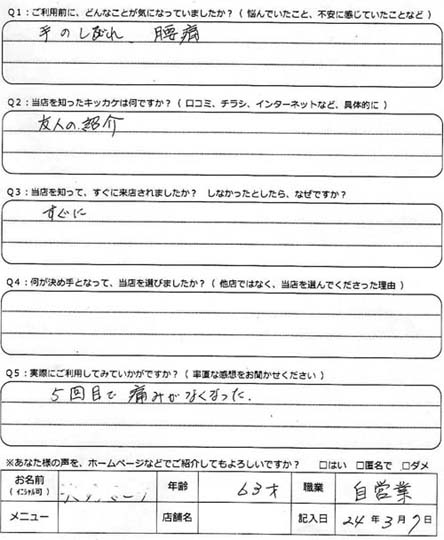 Q1：ご利用前に、どんなことが気になっていましたか？（ 悩んでいたこと、不安に感じていたことなど ）
手のしびれ　腰痛
Q2：当店を知ったキッカケは何ですか？（ 口コミ、チラシ、インターネットなど、具体的に ）
友人の紹介
Q3：当店を知って、すぐに来店されましたか？　しなかったとしたら、なぜですか？
すぐに
Q4：何が決め手となって、当店を選びましたか？（ 他店ではなく、当店を選んでくださった理由 ）
Q5：実際にご利用してみていかがですか？（ 率直な感想をお聞かせください ）
5回目で 痛みがなくなった.
※あなた様の声を、ホームページなどでご紹介してもよろしいですか？　□はい　□匿名で　□ダメ
お名前　年齢　63才　職業　自営業
（ イニシャル可 ）
メニュー　店舗名　記入日　24年3月7日